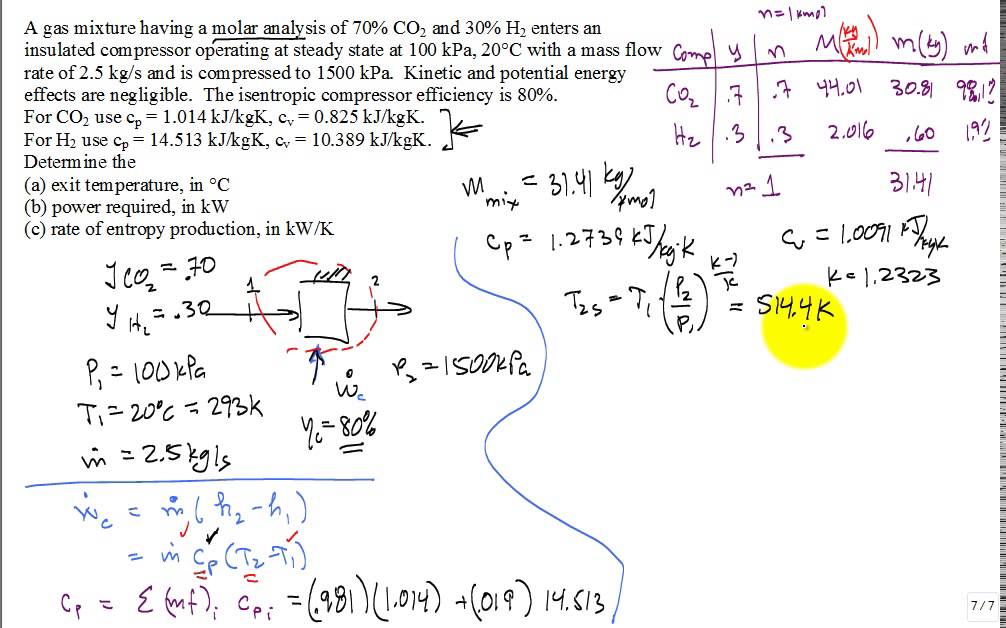 A gas mixture having a molar analysis of 70% CO₂ and 30% H₂ enters an
insulated compressor operating at steady state at 100 kPa, 20°C with a mass flow
rate of 2.5 kg/s and is compressed to 1500 kPa.  Kinetic and potential energy
effects are negligible.  The isentropic compressor efficiency is 80%.
For CO₂ use cₚ = 1.014 kJ/kgK, cᵥ = 0.825 kJ/kgK.
For H₂ use cₚ = 14.513 kJ/kgK, cᵥ = 10.389 kJ/kgK.
Determine the
(a) exit temperature, in °C
(b) power required, in kW
(c) rate of entropy production, in kW/K
n=1kmol
Comp y n M(kg/kmol) m(kg) mf
CO₂ .7 .7 44.01 30.81 98.1%
H₂ .3 .3 2.016 .60 1.9%
n= 1 31.41
M mix = 31.41 kg/kmol
Cp = 1.2739 kJ/kg·K
Cv = 1.0091 kJ/kgK
K = 1.2323
T2s = T₁·(P₂/P₁)^(K-1/K) = 514.4K
yCO₂ = .70
yH₂ = .30
1 2
P₁ = 100kPa
P₂ = 1500kPa
Ẇc
T₁ = 20°C = 293K
ηc = 80%
ṁ = 2.5kg/s
Ẇc = ṁ(h₂-h₁)
= ṁ Cp (T₂-T₁)
Cp = Σ(mf)i Cpi = (.981)(1.014) + (.019) 14.513
7 / 7